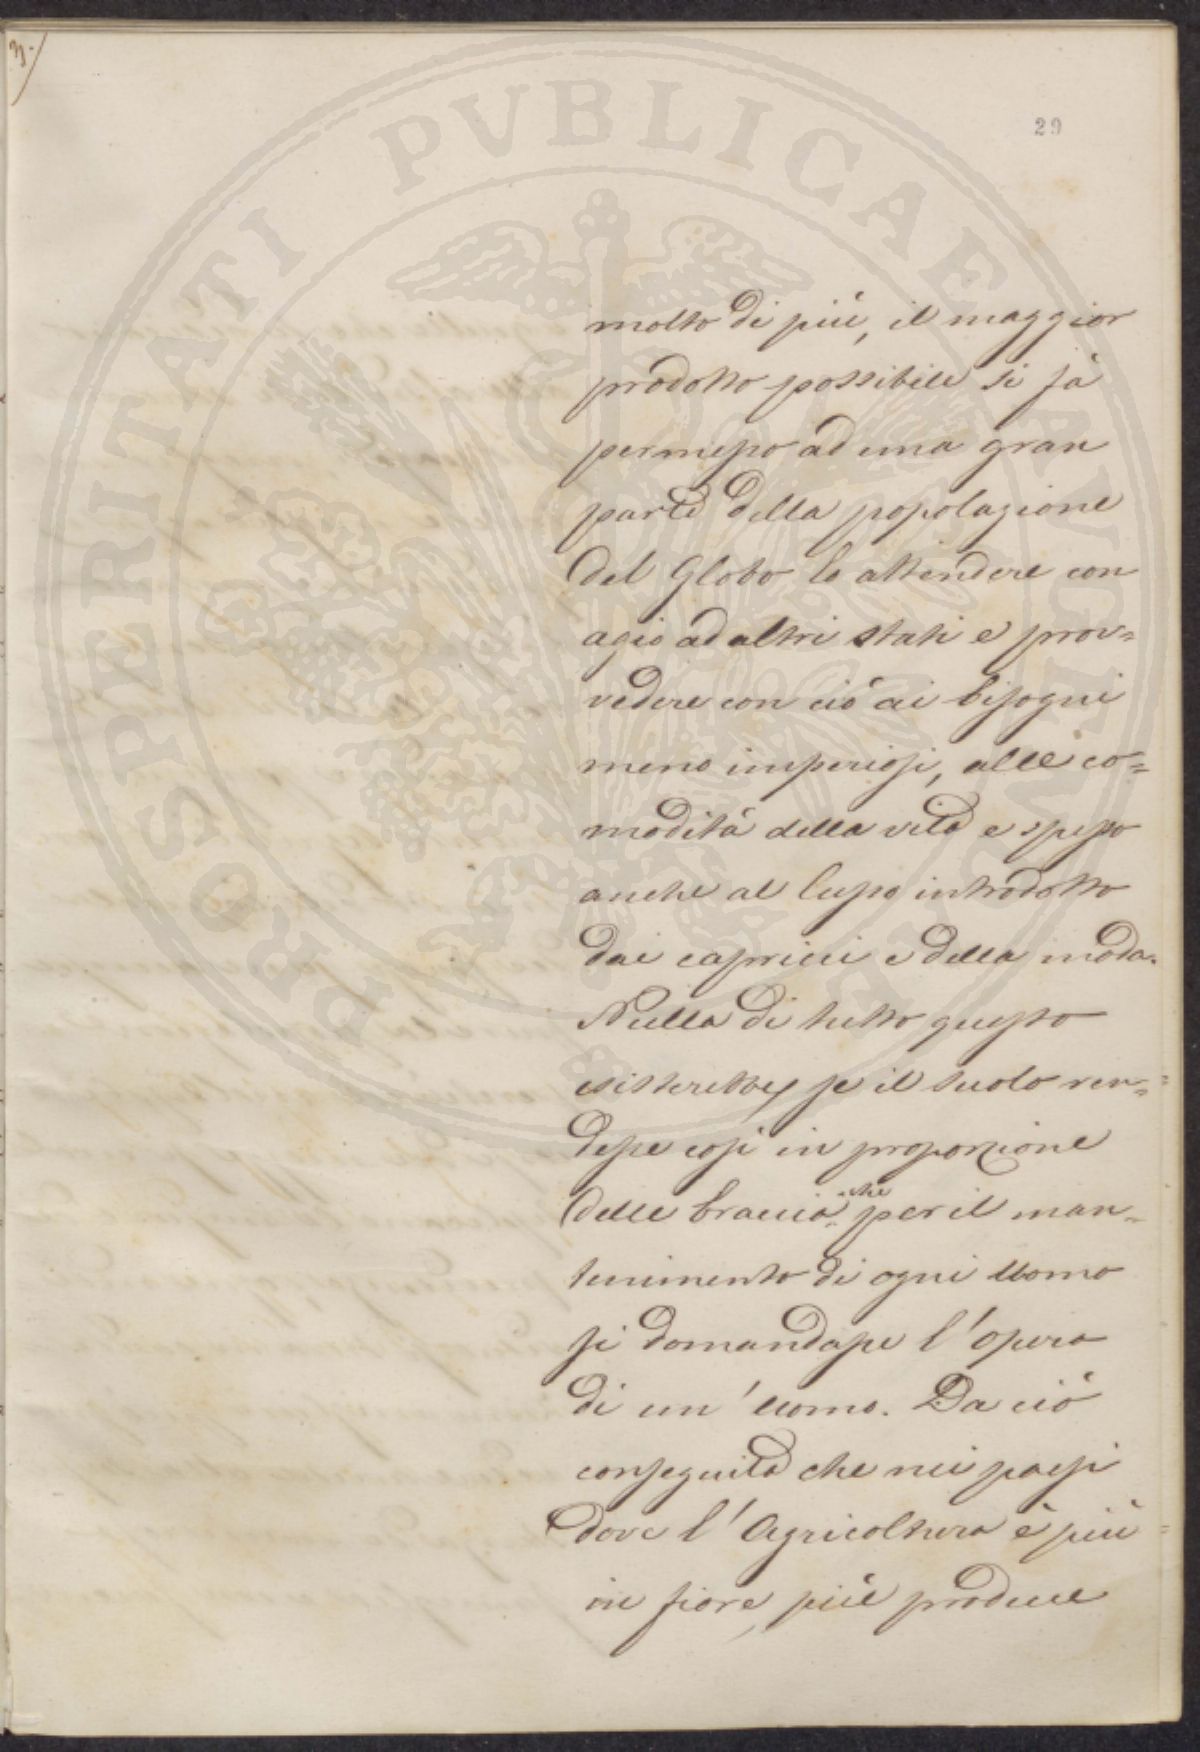 3.
29
PROSPERITATI PUBLICAE AUGENDAE
molto di più, il maggior
prodotto possibile si fà
permesso ad una gran
parte della popolazione
del Globo lo attendere con
agio ad altri stati e prov=
vedere con ciò ai bisogni
meno imperiosi, alle co=
modità della vita e spesso
anche al lusso introdotto
dai capricci e della moda.
Nulla di tutto questo
esisterebbe, se il suolo ren=
desse così in proporzione
delle braccia che per il man=
tenimento di ogni uomo
si domandasse l'opera
di un' uomo. Da ciò
conseguita che nei paesi
dove l'Agricoltura è più
in fiore, più produce